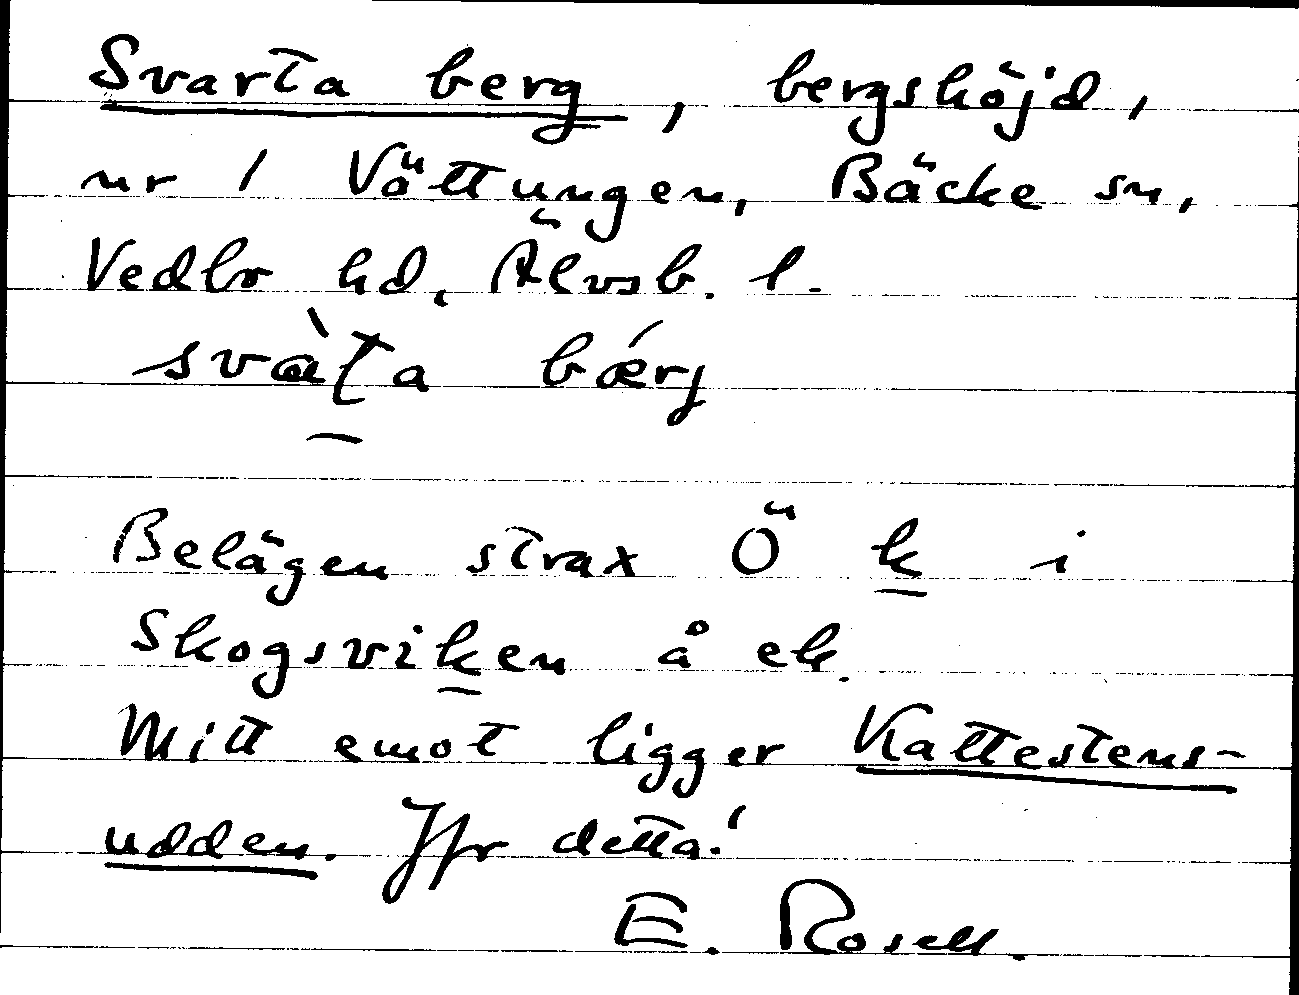 Svarta berg, bergshöjd,
nr 1 Vättungen, Bäcke sn,
Vedbo hd, Älvsb. l.
svàʈa bǽrj
Belägen strax Ö k i
Skogsviken å ek.
Mitt emot ligger Kattestens-
udden. Jfr detta!
E. Rosell.